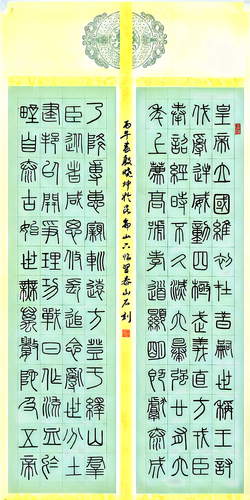 皇帝立國維初在昔嗣世稱王討
伐亂逆威動四極武義直方戎臣
奉詔經時不久滅六暴強廿有六
年上薦高號孝道顯明既獻泰成
丙午 於 山 泰山石刻
乃降專惠親巡遠方登于繹山羣
臣從者咸思攸長追念亂世分土
建邦以開爭理功戰日作流血於
野自泰古始世無萬數陀及五帝